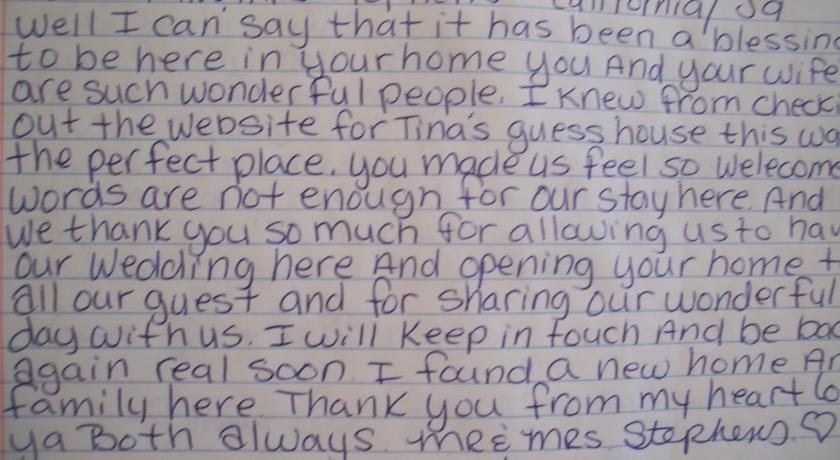 California, Ja
Well I can say that it has been a blessing
to be here in your home you And your wife
are such wonderful people. I knew from check
out the website for Tina's guess house this wa
the perfect place. you made us feel so welecome
words are not enough for our stay here. And
we thank you so much for allowing us to hav
our Wedding here And opening your home t
all our guest and for sharing our wonderful
day with us. I will keep in touch And be bac
again real soon. I found a new home An
family here. Thank you from my heart Lo
ya Both always. Stephens. ♡